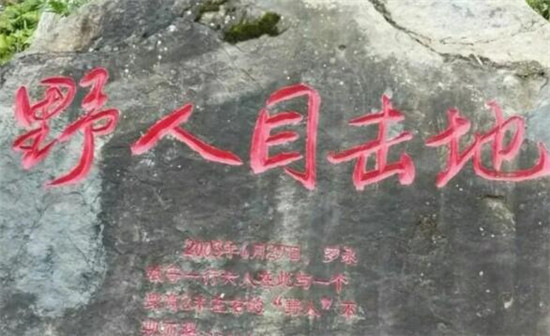 野人目击地
2003年6月29日，罗永
一行六人在此与一个
身高2米左右的“野人”不
期而遇